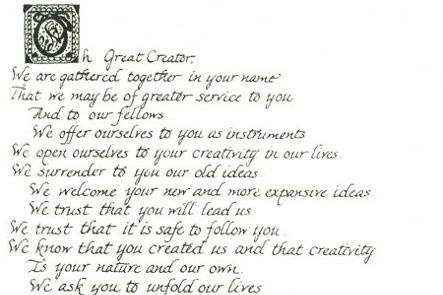 Oh Great Creator,
We are gathered together in your name
That we may be of greater service to you
And to our fellows.
We offer ourselves to you as instruments
We open ourselves to your creativity in our lives.
We surrender to you our old ideas
We welcome your new and more expansive ideas
We trust that you will lead us
We trust that it is safe to follow you.
We know that you created us and that creativity
Is your nature and our own.
We ask you to unfold our lives